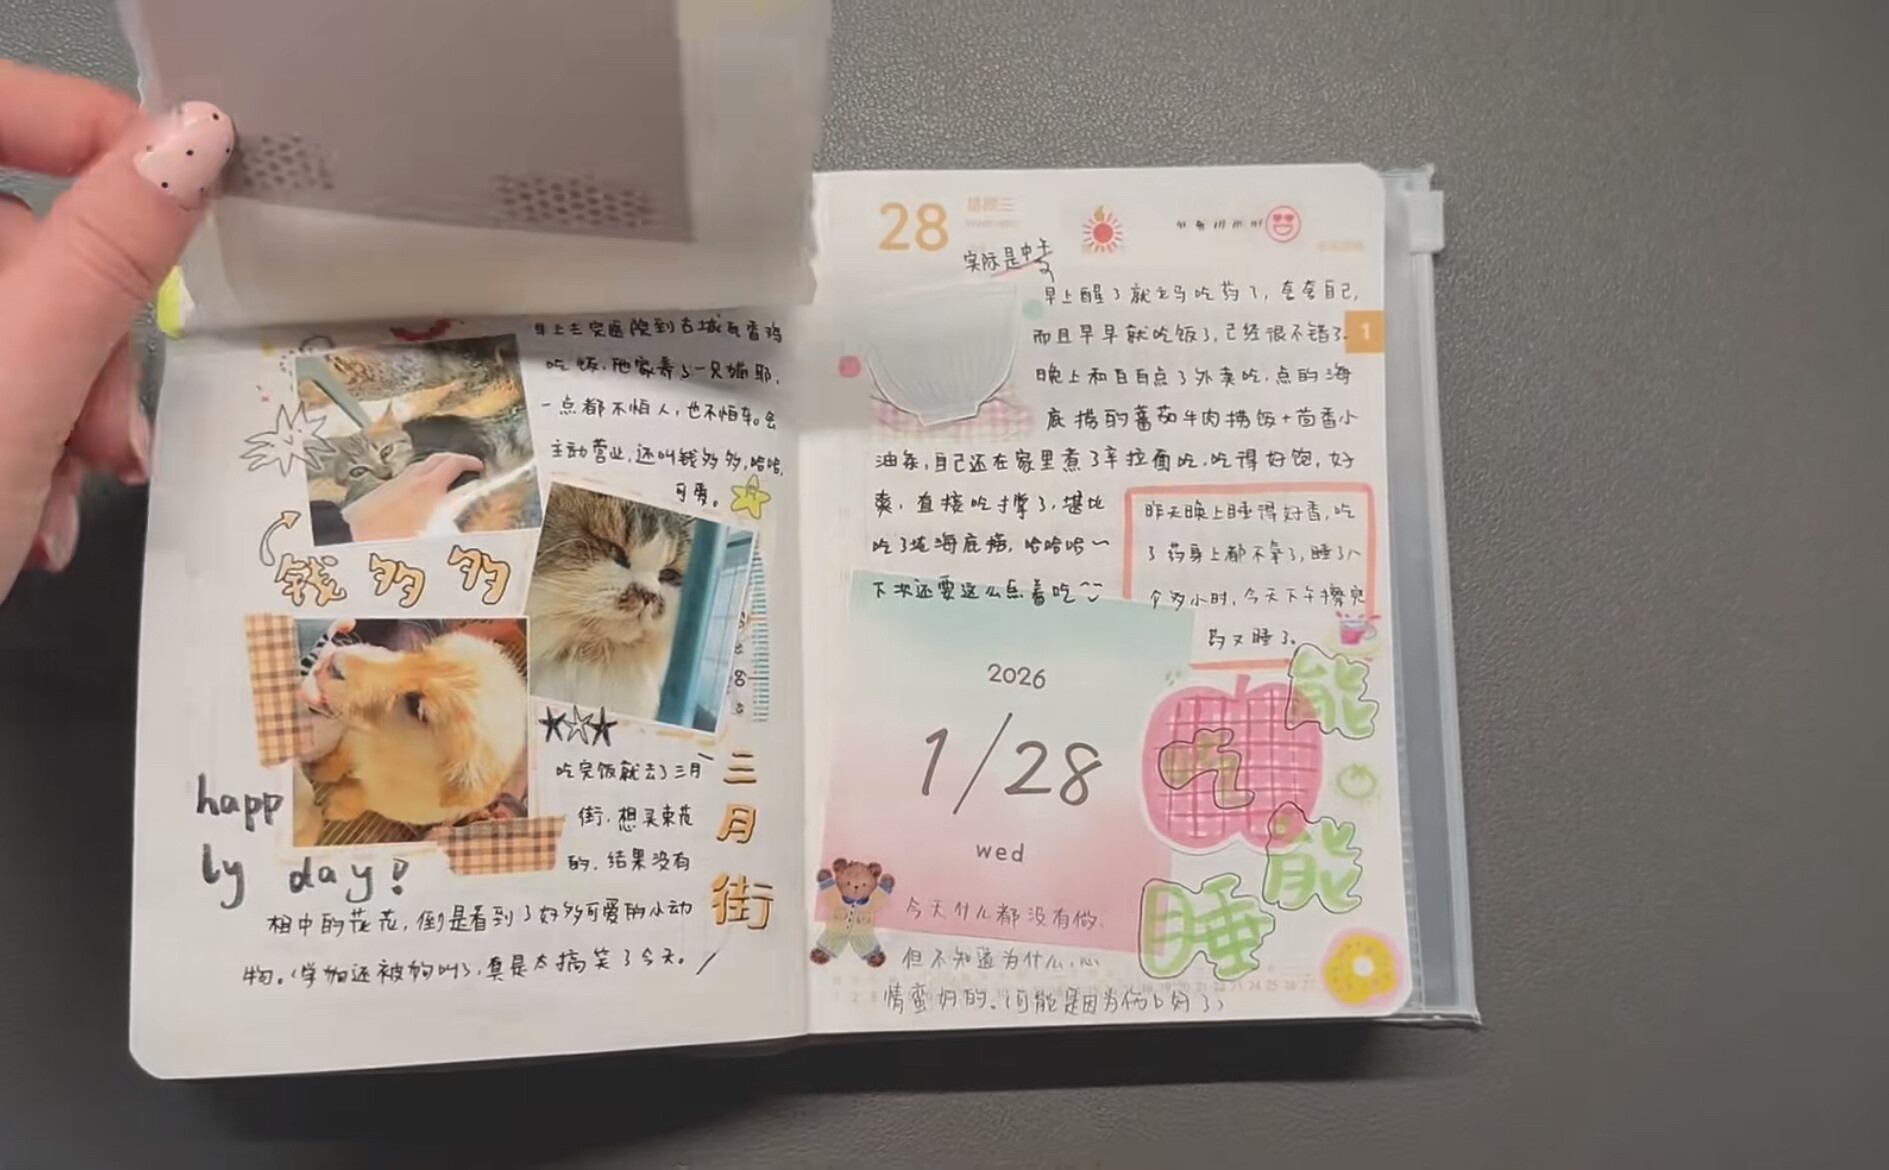 早上去完医院到古城瓦香鸡
吃饭,他家养了一只猫耶,
一点都不怕人,也不怕车。会
主动营业,还叫钱多多,哈哈,
可爱。
钱多多
吃完饭就去了三月
街,想买束花
的,结果没有
相中的花花,倒是看到了好多可爱的小动
物。(学姐还被狗叫了,真是太搞笑了今天。
三月街
happ
ly day!
60
28
星期三
实际是中午
早上醒了就去吃药了,夸夸自己,
而且早早就吃饭了,已经很不错了。
晚上和白白点了外卖吃,点的海
底捞的蕃茄牛肉捞饭+茴香小
油条,自己还在家里煮了辛拉面吃,吃得好饱,好
爽,直接吃撑了,堪比
吃了顿海底捞,哈哈哈~
下次还要这么点着吃
1
昨天晚上睡得好香,吃
了药身上都不氧了,睡了八
个多小时,今天下午擦完
药又睡了。
2026
1/28
wed
能吃能睡
今天什么都没有做,
但不知道为什么,心
情蛮好的。(可能是因为伤口好了)